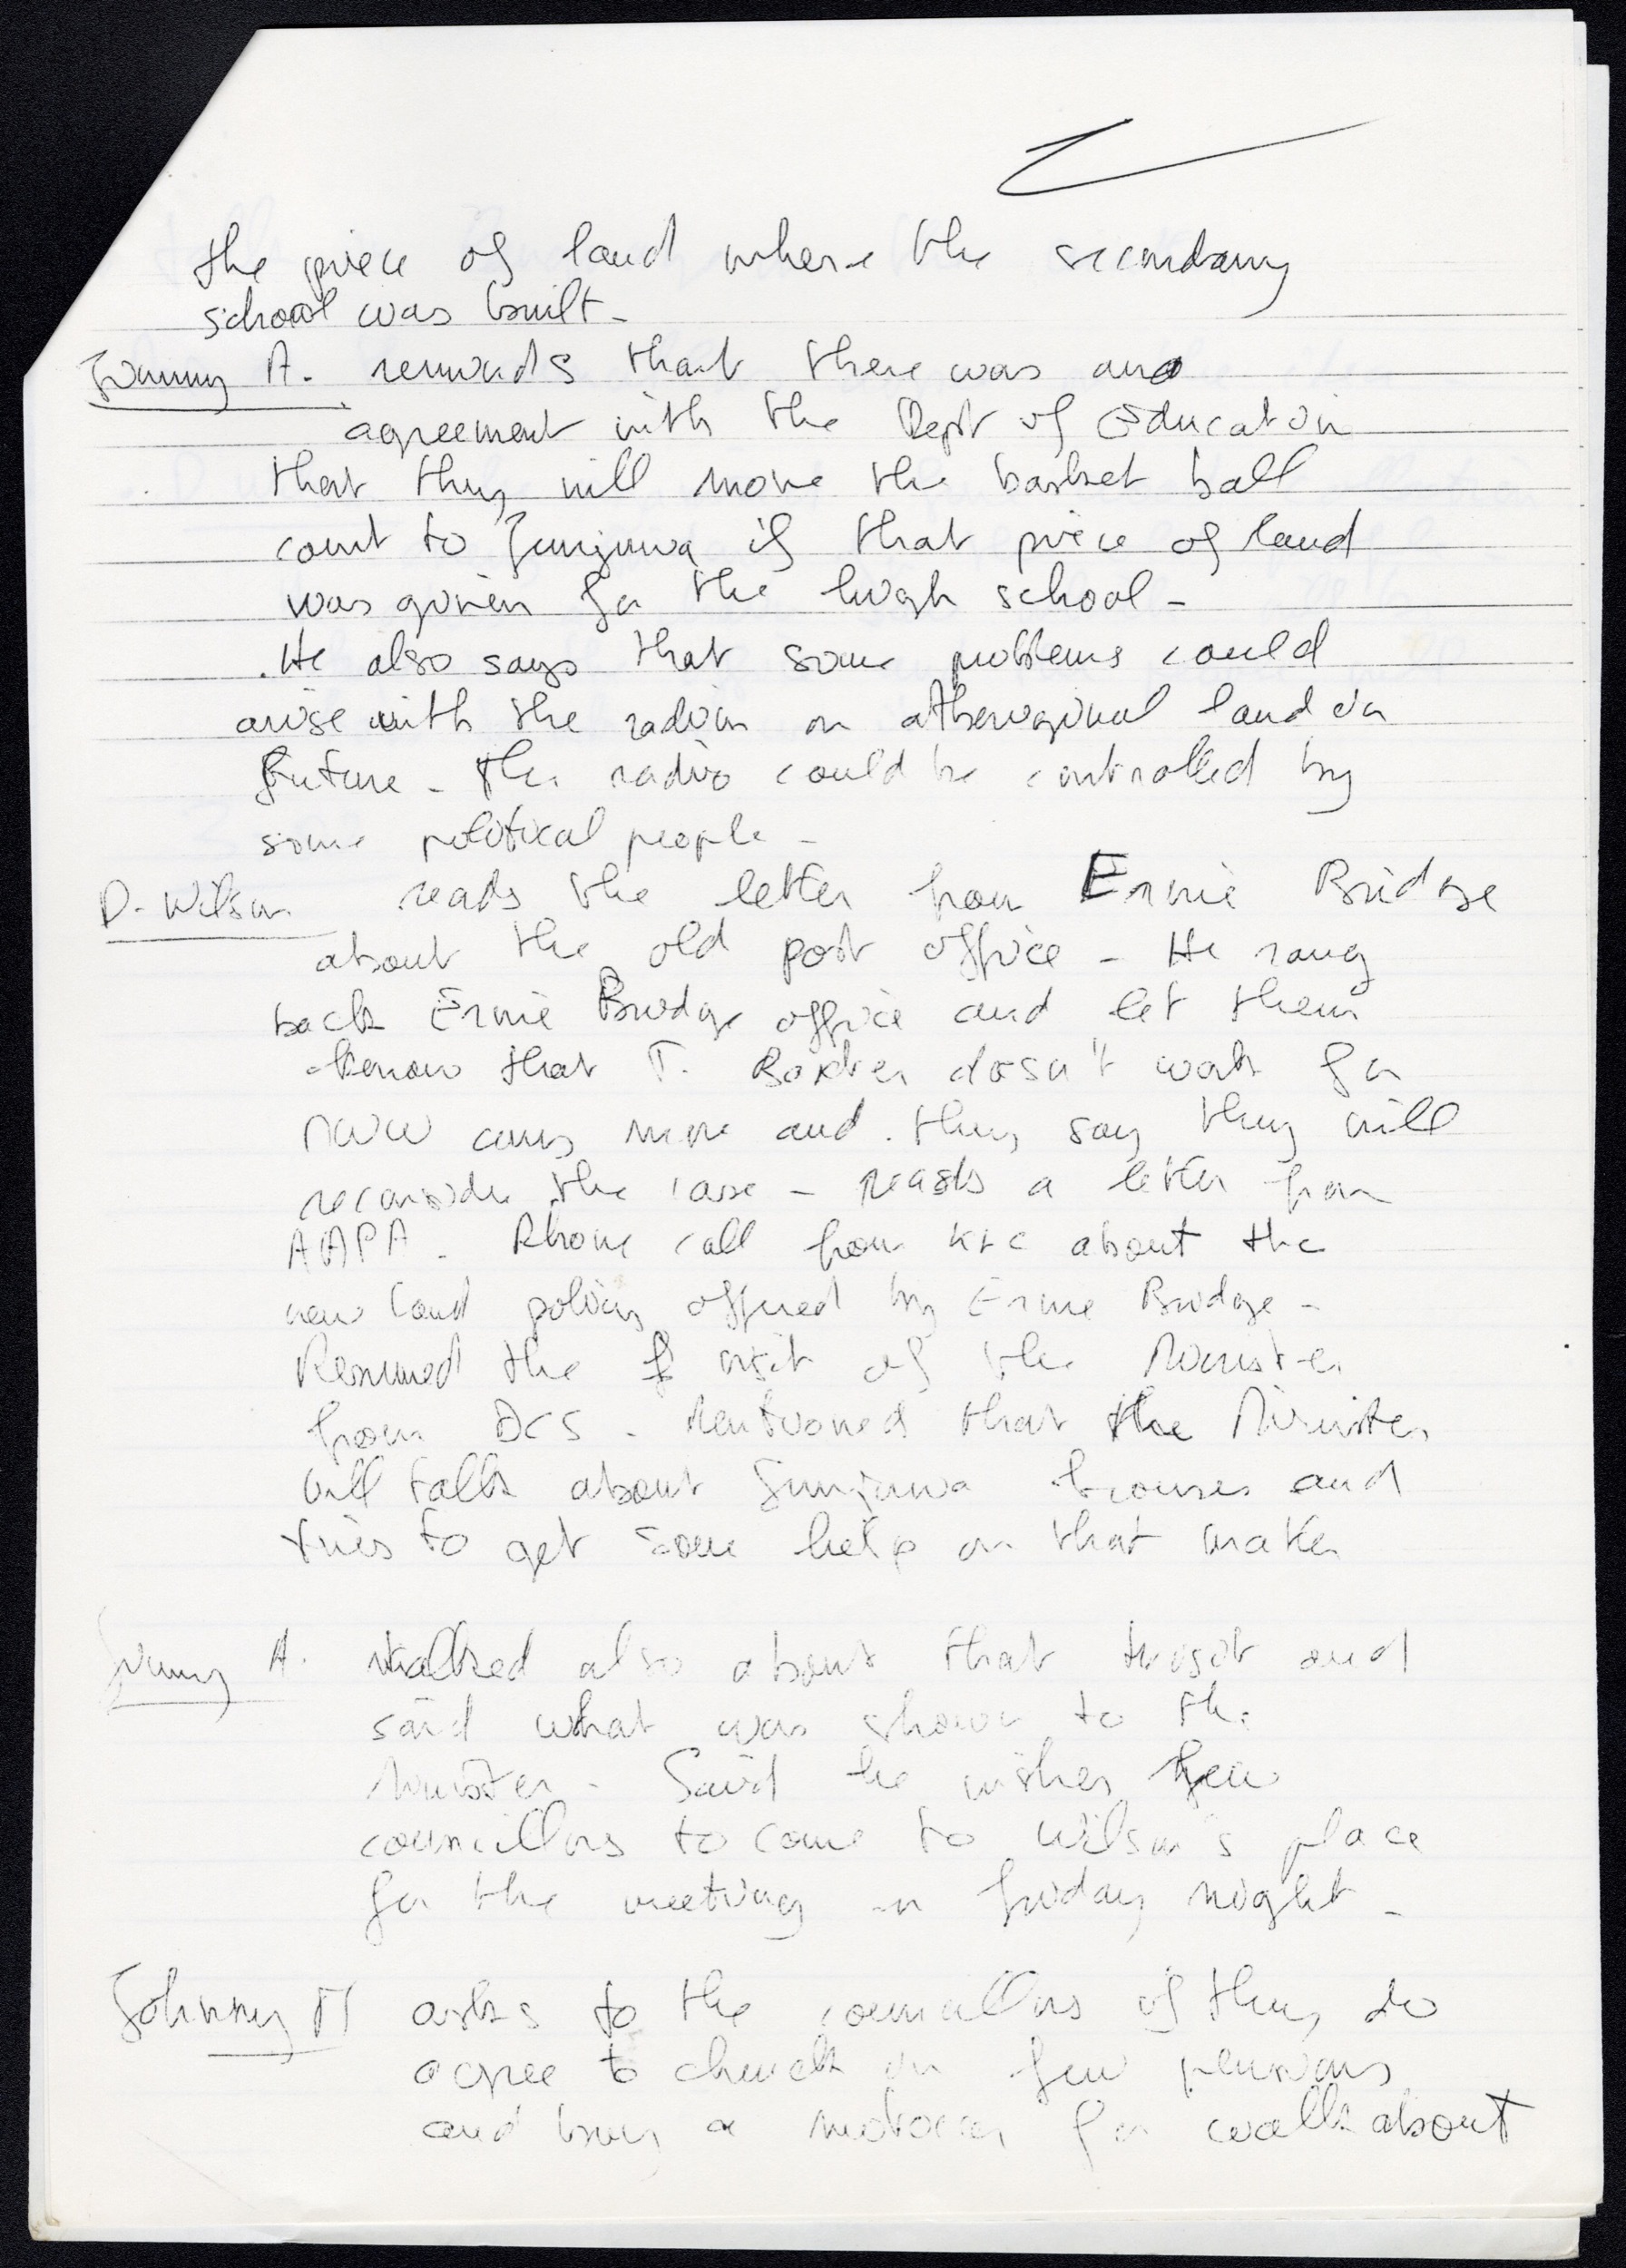 the piece of land where the secondary
school was built -
Jimmy A. reminds that there was an
agreement with the Dept of Education
that they will move the basket ball
court to Junjuwa if that piece of land
was given for the high school -
. He also says that some problems could
arise with the radio on atheroginal land in
future - The radio could be controlled by
some political people -
D. Wilson reads the letter from Ernie Bridge
about the old post office - He rang
back Ernie Bridge office and let them
know that T. Baxter doesn't work for
any more and . they say they will
reconsider the case - reads a letter from
AAPA . Phone call from KLC about the
new land policy offered by Ernie Bridge -
Resumed the visit of the Minister
from DCS - Mentioned that the Minister
will talk about Junjuwa houses and
tries to get some help on that matter
Jimmy A. talked also about that visit and
said what was shown to the
Minister - Said he wishes few
councillors to come to Wilson's place
for the meeting on friday night -
Johnny M asks to the councillors if they do
agree to chuck in few pensions
and buy a motorcar for walkabout